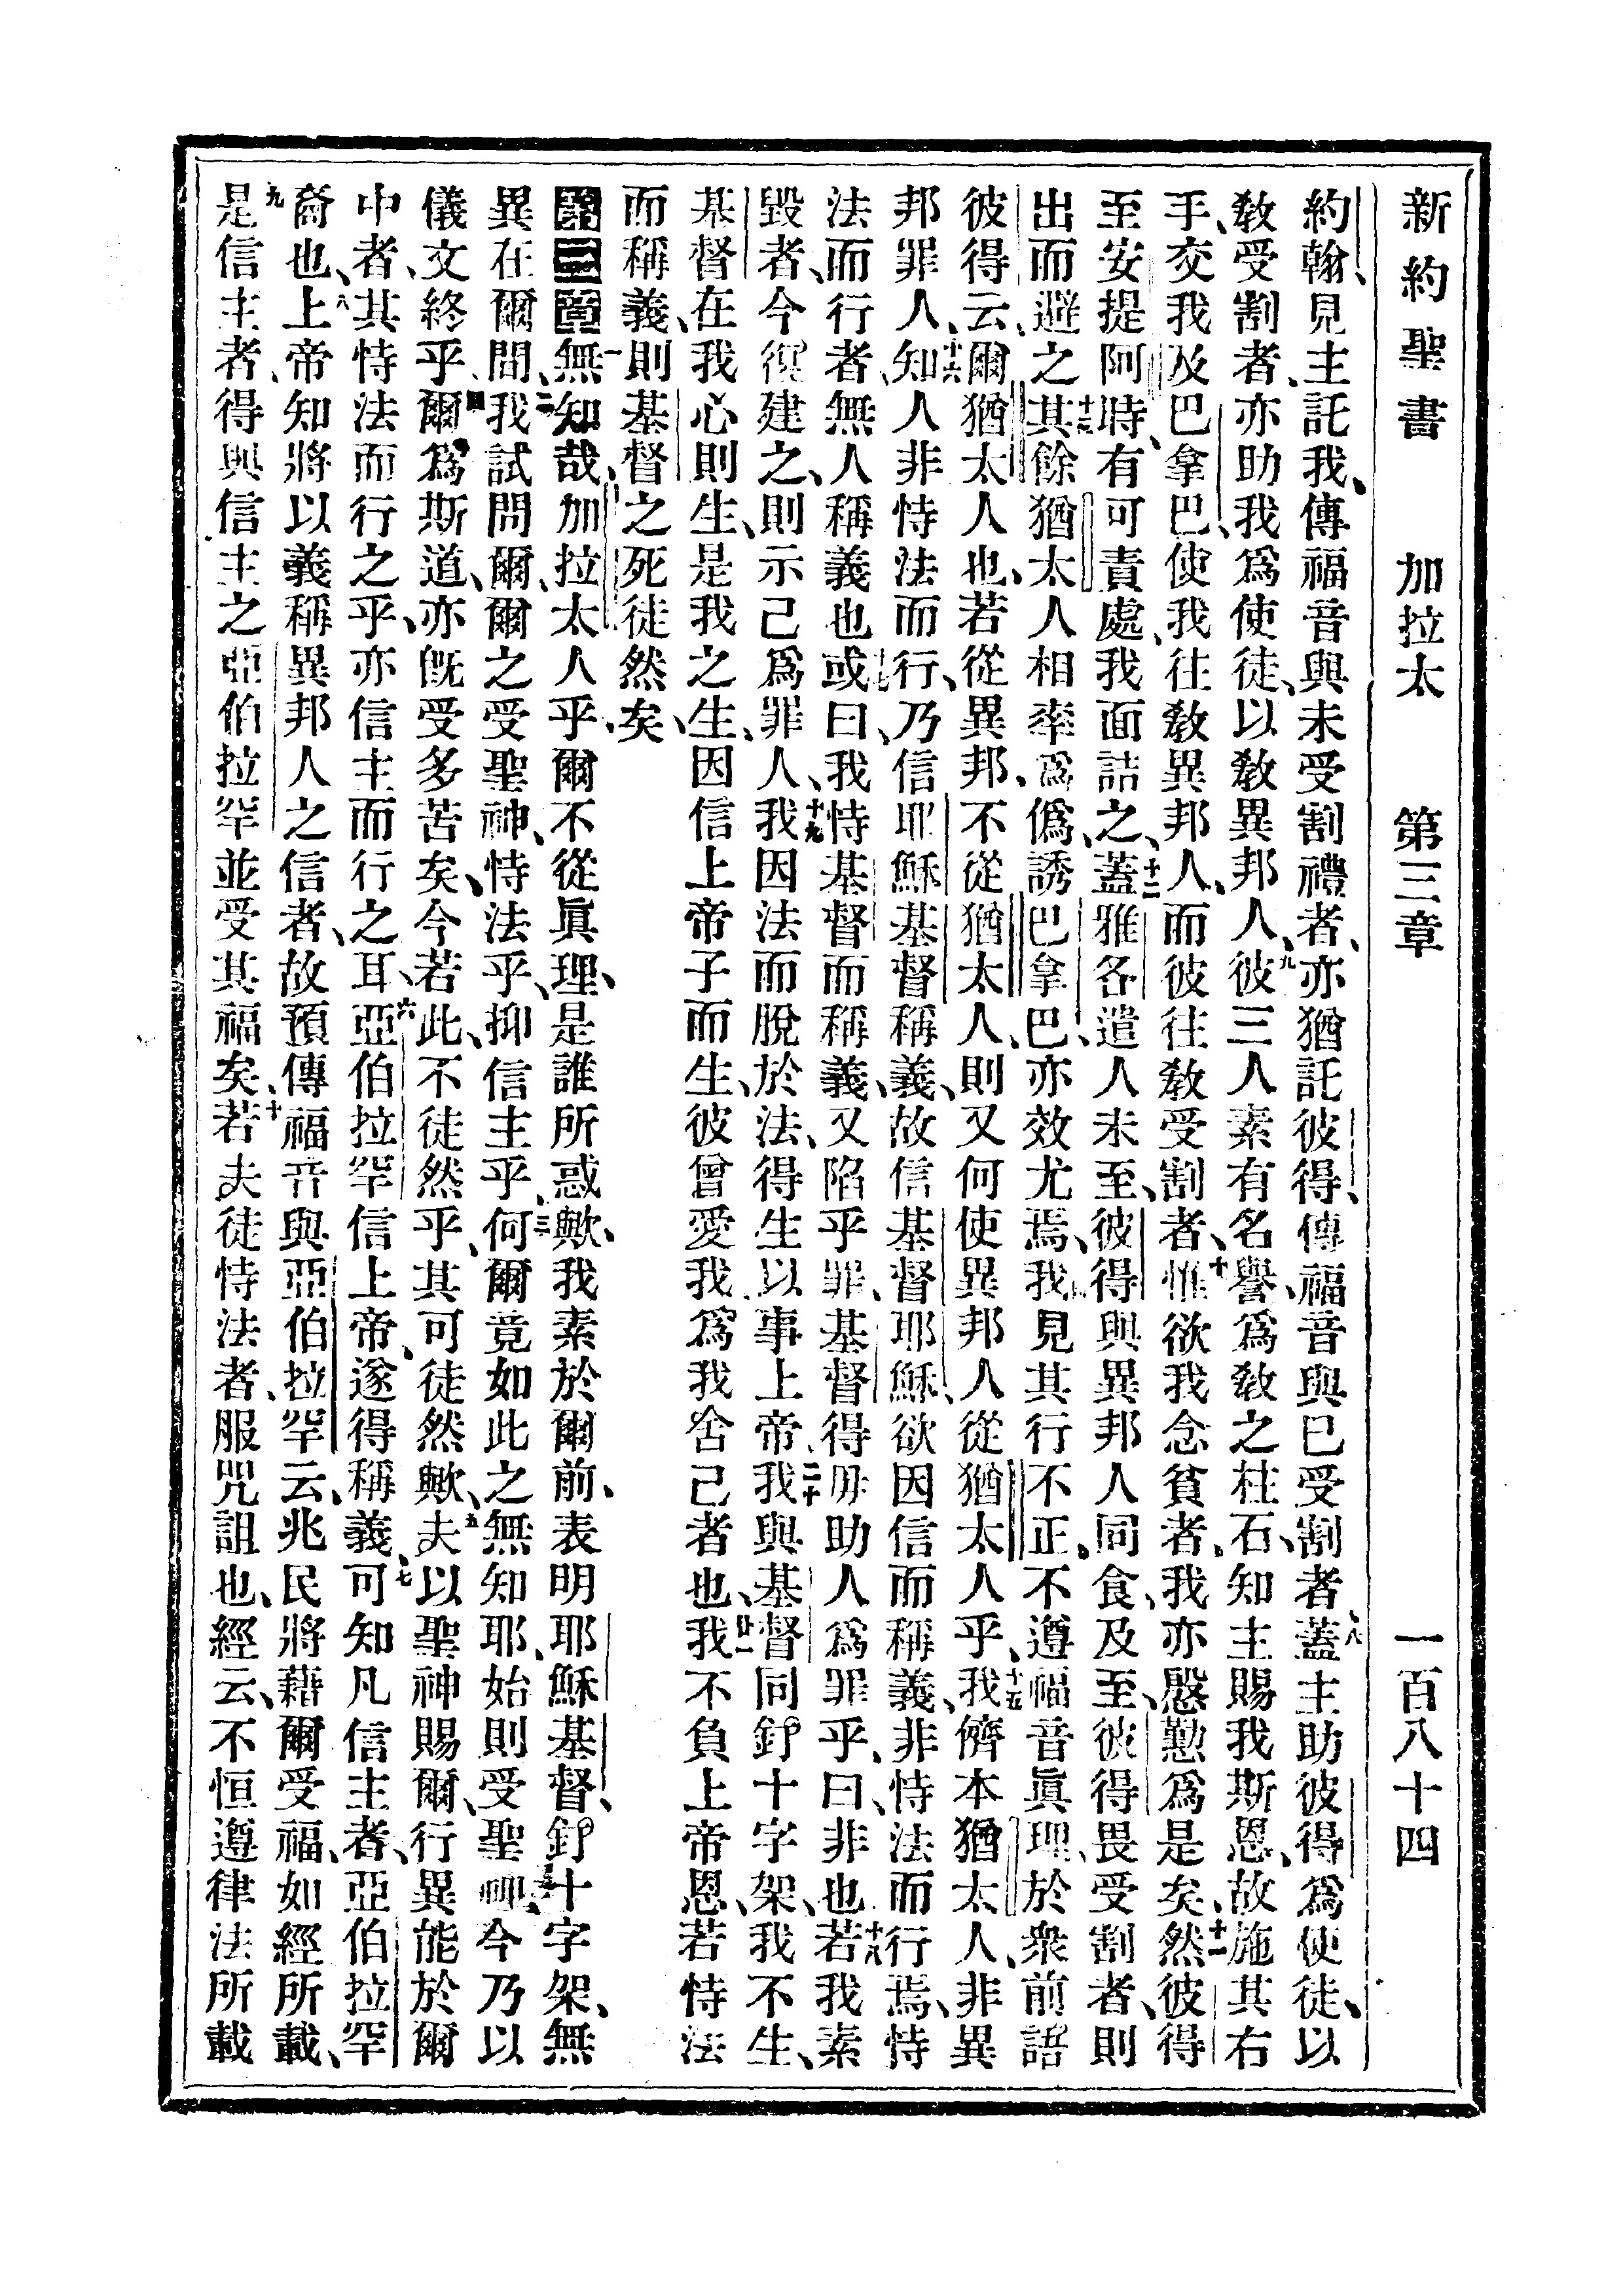 新約聖書 加拉太 第三章 一百八十四
約翰、見主託我、傳福音與未受割禮者、亦猶託彼得、傳福音與已受割者、八蓋主助彼得爲使徒、以
敎受割者、亦助我爲使徒、以敎異邦人、九彼三人素有名譽、爲敎之柱石、知主賜我斯恩、故施其右
手、交我及巴拿巴、使我往敎異邦人、而彼往敎受割者、十惟欲我念貧者、我亦慇懃爲是矣、十一然彼得
至安提阿時、有可責處、我面詰之、十二蓋雅各遣人未至、彼得與異邦人同食、及至、彼得畏受割者、則
出而避之、十三其餘猶太人相率爲僞、誘巴拿巴、亦效尤焉、我見其行不正、不遵福音眞理、於衆前語
彼得云、爾猶太人也、若從異邦、不從猶太人、則又何使異邦人從猶太人乎、十五我儕本猶太人、非異
邦罪人、十六知人非恃法而行、乃信耶穌基督稱義、故信基督耶穌、欲因信而稱義、非恃法而行焉、恃
法而行者、無人稱義也、或曰、我恃基督而稱義、又陷乎罪、基督得毋助人爲罪乎、曰、非也、十八若我素
毀者、今復建之、則示己爲罪人、十九我因法而脫於法、得生以事上帝、二十我與基督同釘十字架、我不生、
基督在我心則生、是我之生、因信上帝子而生、彼曾愛我、爲我舍己者也、廿一我不負上帝恩、若恃法
而稱義、則基督之死徒然矣、
第三章一無知哉、加拉太人乎、爾不從眞理、是誰所惑歟、我素於爾前、表明耶穌基督、釘十字架、無
異在爾間、二我試問爾、爾之受聖神、恃法乎、抑信主乎、三何爾竟如此之無知耶、始則受聖神、今乃以
儀文終乎、四爾爲斯道、亦旣受多苦矣、今若此、不徒然乎、其可徒然歟、五夫以聖神賜爾、行異能於爾
中者、其恃法而行之乎、亦信主而行之耳、六亞伯拉罕信上帝、遂得稱義、七可知凡信主者、亞伯拉罕
裔也、八上帝知將以義稱異邦人之信者、故預傳福音與亞伯拉罕云、兆民將藉爾受福、如經所載、
九是信主者、得與信主之亞伯拉罕並受其福矣、十若夫徒恃法者、服咒詛也、經云、不恒遵律法所載